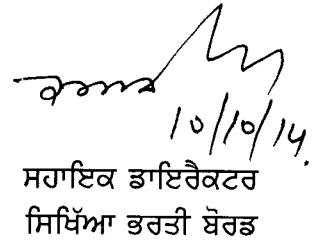 10/10/14.
ਸਹਾਇਕ ਡਾਇਰੈਕਟਰ
ਸਿਖਿੱਆ ਭਰਤੀ ਬੋਰਡ